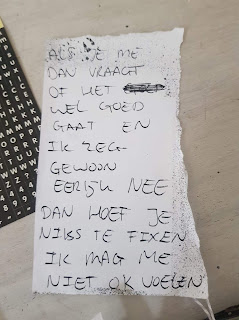 ALS JE ME
DAN VRAAGT
OF HET
WEL GOED
GAAT EN
IK ZEG
GEWOON
EERLIJK NEE
DAN HOEF JE
NIKS TE FIXEN
IK MAG ME
NIET OK VOELEN